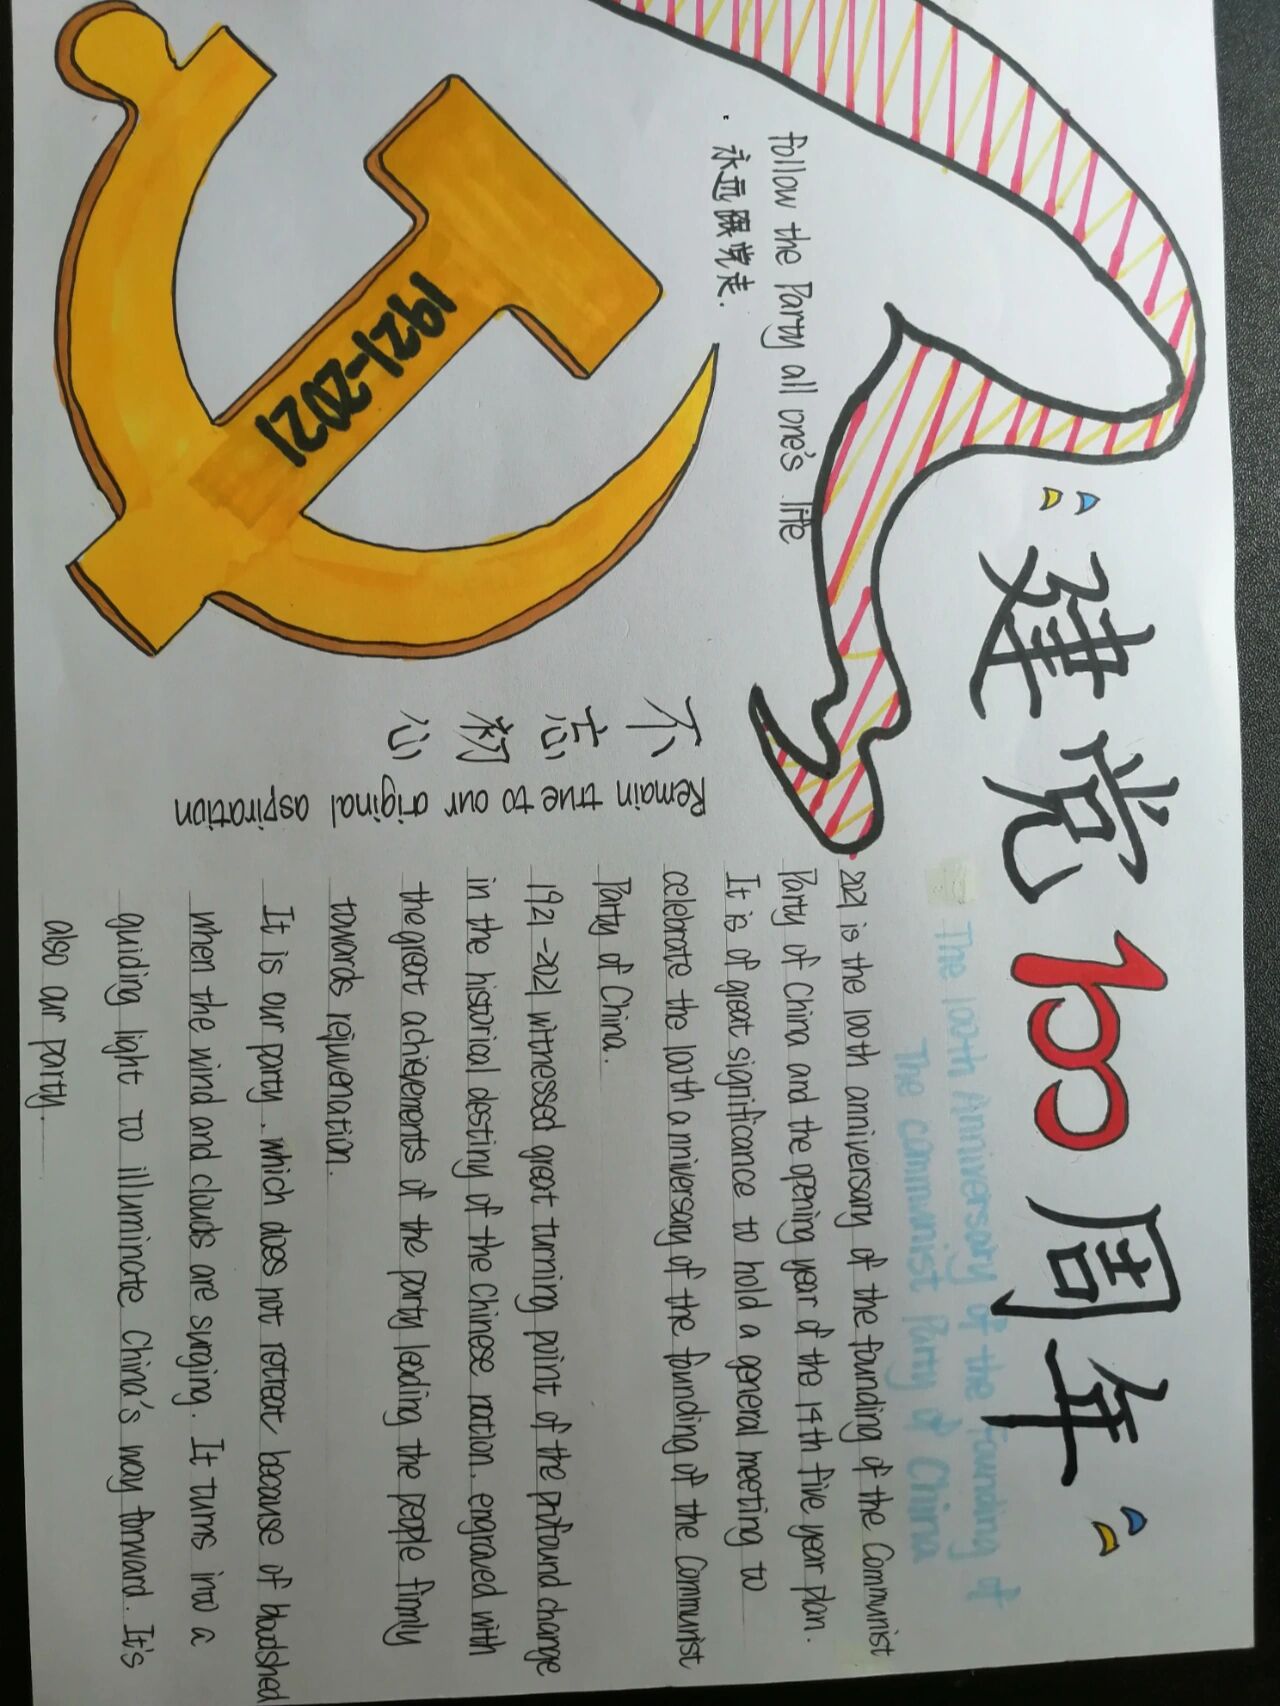 建党100周年
The 100th Anniversary of the Founding of
The communist Party of China
follow the Party all one's life
永远跟党走.
1921-2021
不忘初心
Remain true to our original aspiration
2021 is the 100th anniversary of the founding of the Communist
Party of China and the opening year of the 14th five year plan.
It is of great significance to hold a general meeting to
celebrate the 100th anniversary of the founding of the Communist
Party of China.
1921-2021 witnessed great turning point of the profound change
in the historical destiny of the Chinese nation. engraved with
the great achievements of the party leading the people firmly
towards rejuvenation.
It is our party. which does not retreat because of bloodshed
when the wind and clouds are surging. It turns into a
guiding light to illuminate China's way forward. It's
also our party.